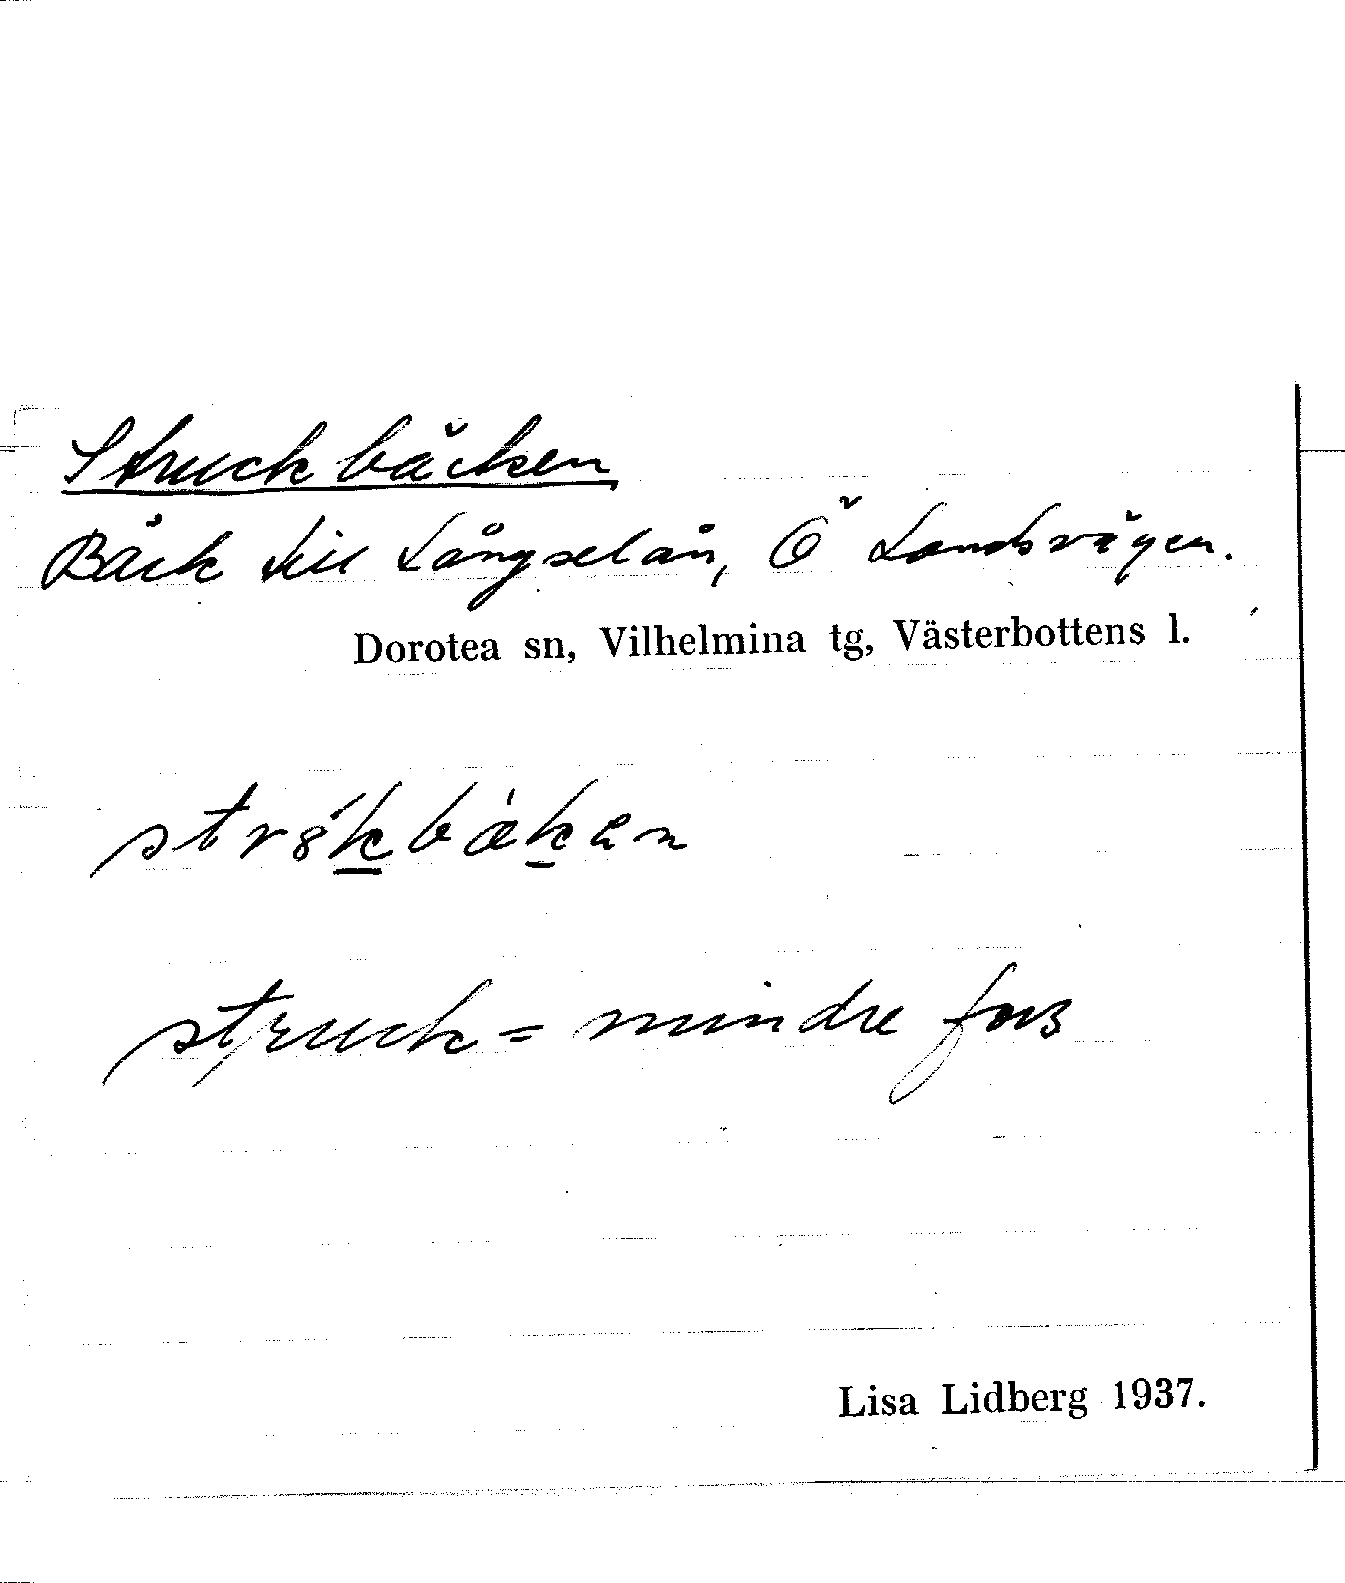 Struckbäcken
Bäck till Långselån, Ö Landsvägen.
Dorotea sn, Vilhelmina tg, Västerbottens l.
str8́kbækan
struck = mindre fors
Lisa Lidberg 1937.